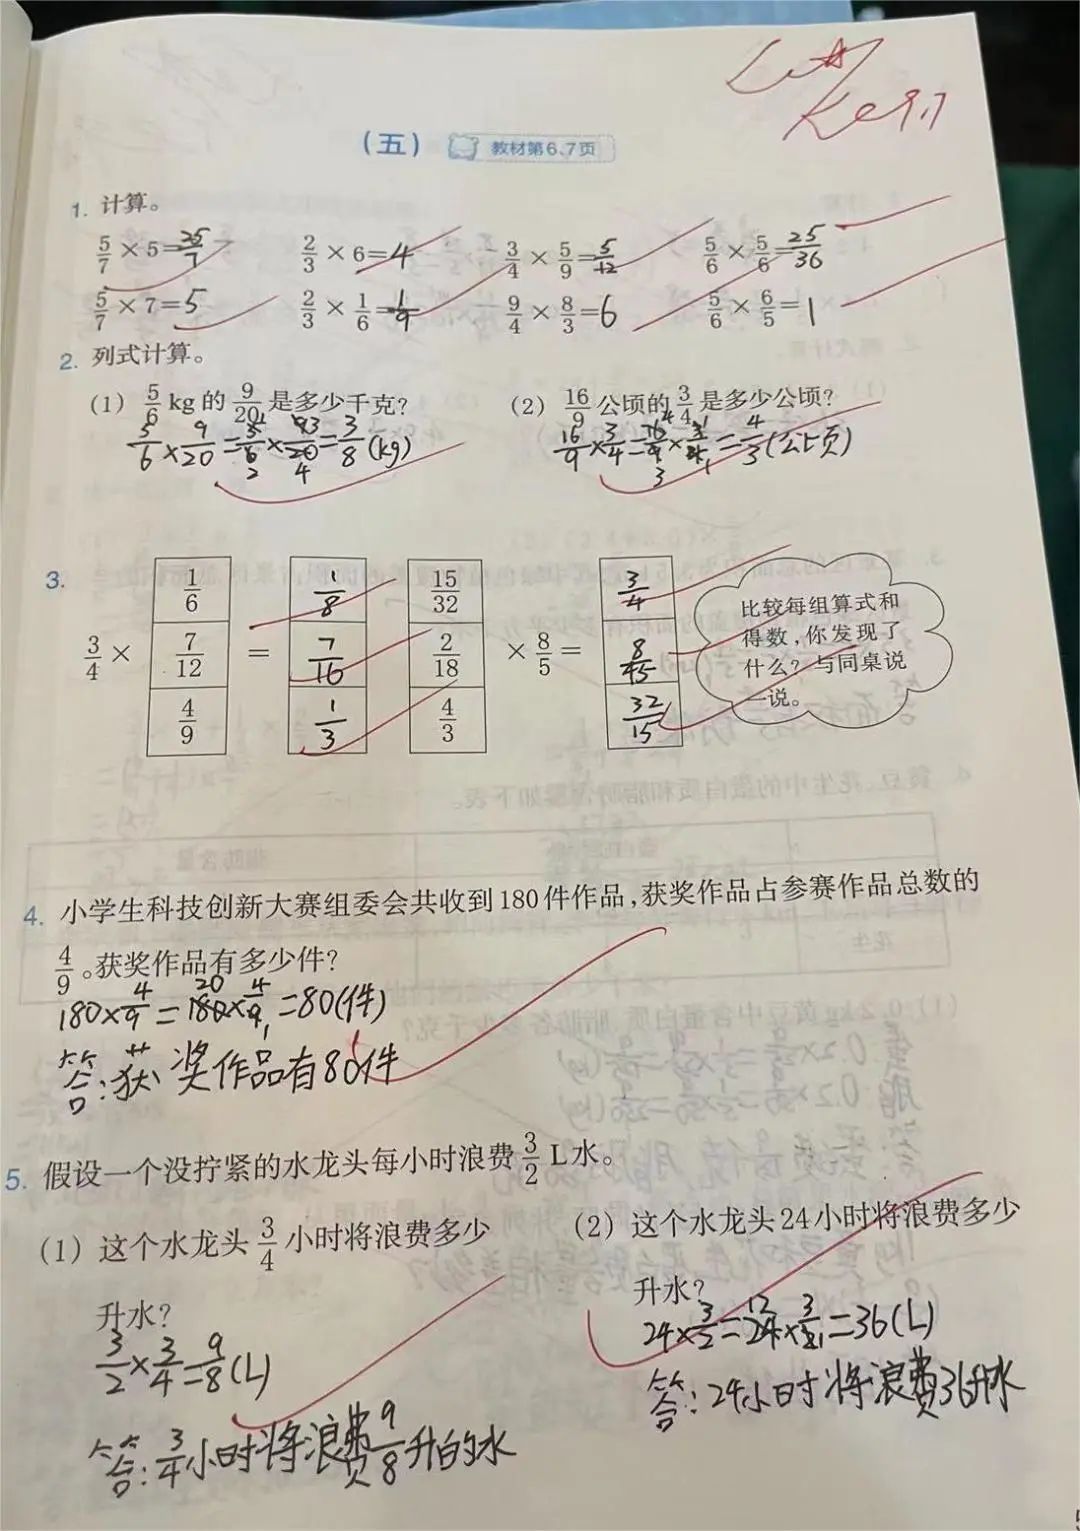 （五） 教材第6、7页
1. 计算。
5/7×5=25/7 2/3×6=4 3/4×5/9=5/12 5/6×5/6=25/36
5/7×7=5 2/3×1/6=1/9 9/4×8/3=6 5/6×6/5=1
2. 列式计算。
(1) 5/6 kg的 9/20 是多少千克? (2) 16/9 公顷的 3/4 是多少公顷?
5/6×9/20=5/6×9/20=3/8(kg) 16/9×3/4=16/9×3/4=4/3(公顷)
3. 3/4× 1/6 7/12 4/9 = 1/8 7/16 1/3
15/32 2/18 4/3 ×8/5= 3/4 8/45 32/15
比较每组算式和
得数,你发现了
什么? 与同桌说
一说。
4. 小学生科技创新大赛组委会共收到180件作品,获奖作品占参赛作品总数的
4/9。获奖作品有多少件?
180×4/9=180×4/9=80(件)
答:获奖作品有80件
5. 假设一个没拧紧的水龙头每小时浪费 3/2 L水。
(1) 这个水龙头 3/4 小时将浪费多少
升水?
3/2×3/4=9/8(L)
答:3/4小时将浪费9/8升的水
(2) 这个水龙头24小时将浪费多少
升水?
24×3/2=24×3/2=36(L)
答:24小时将浪费36升水